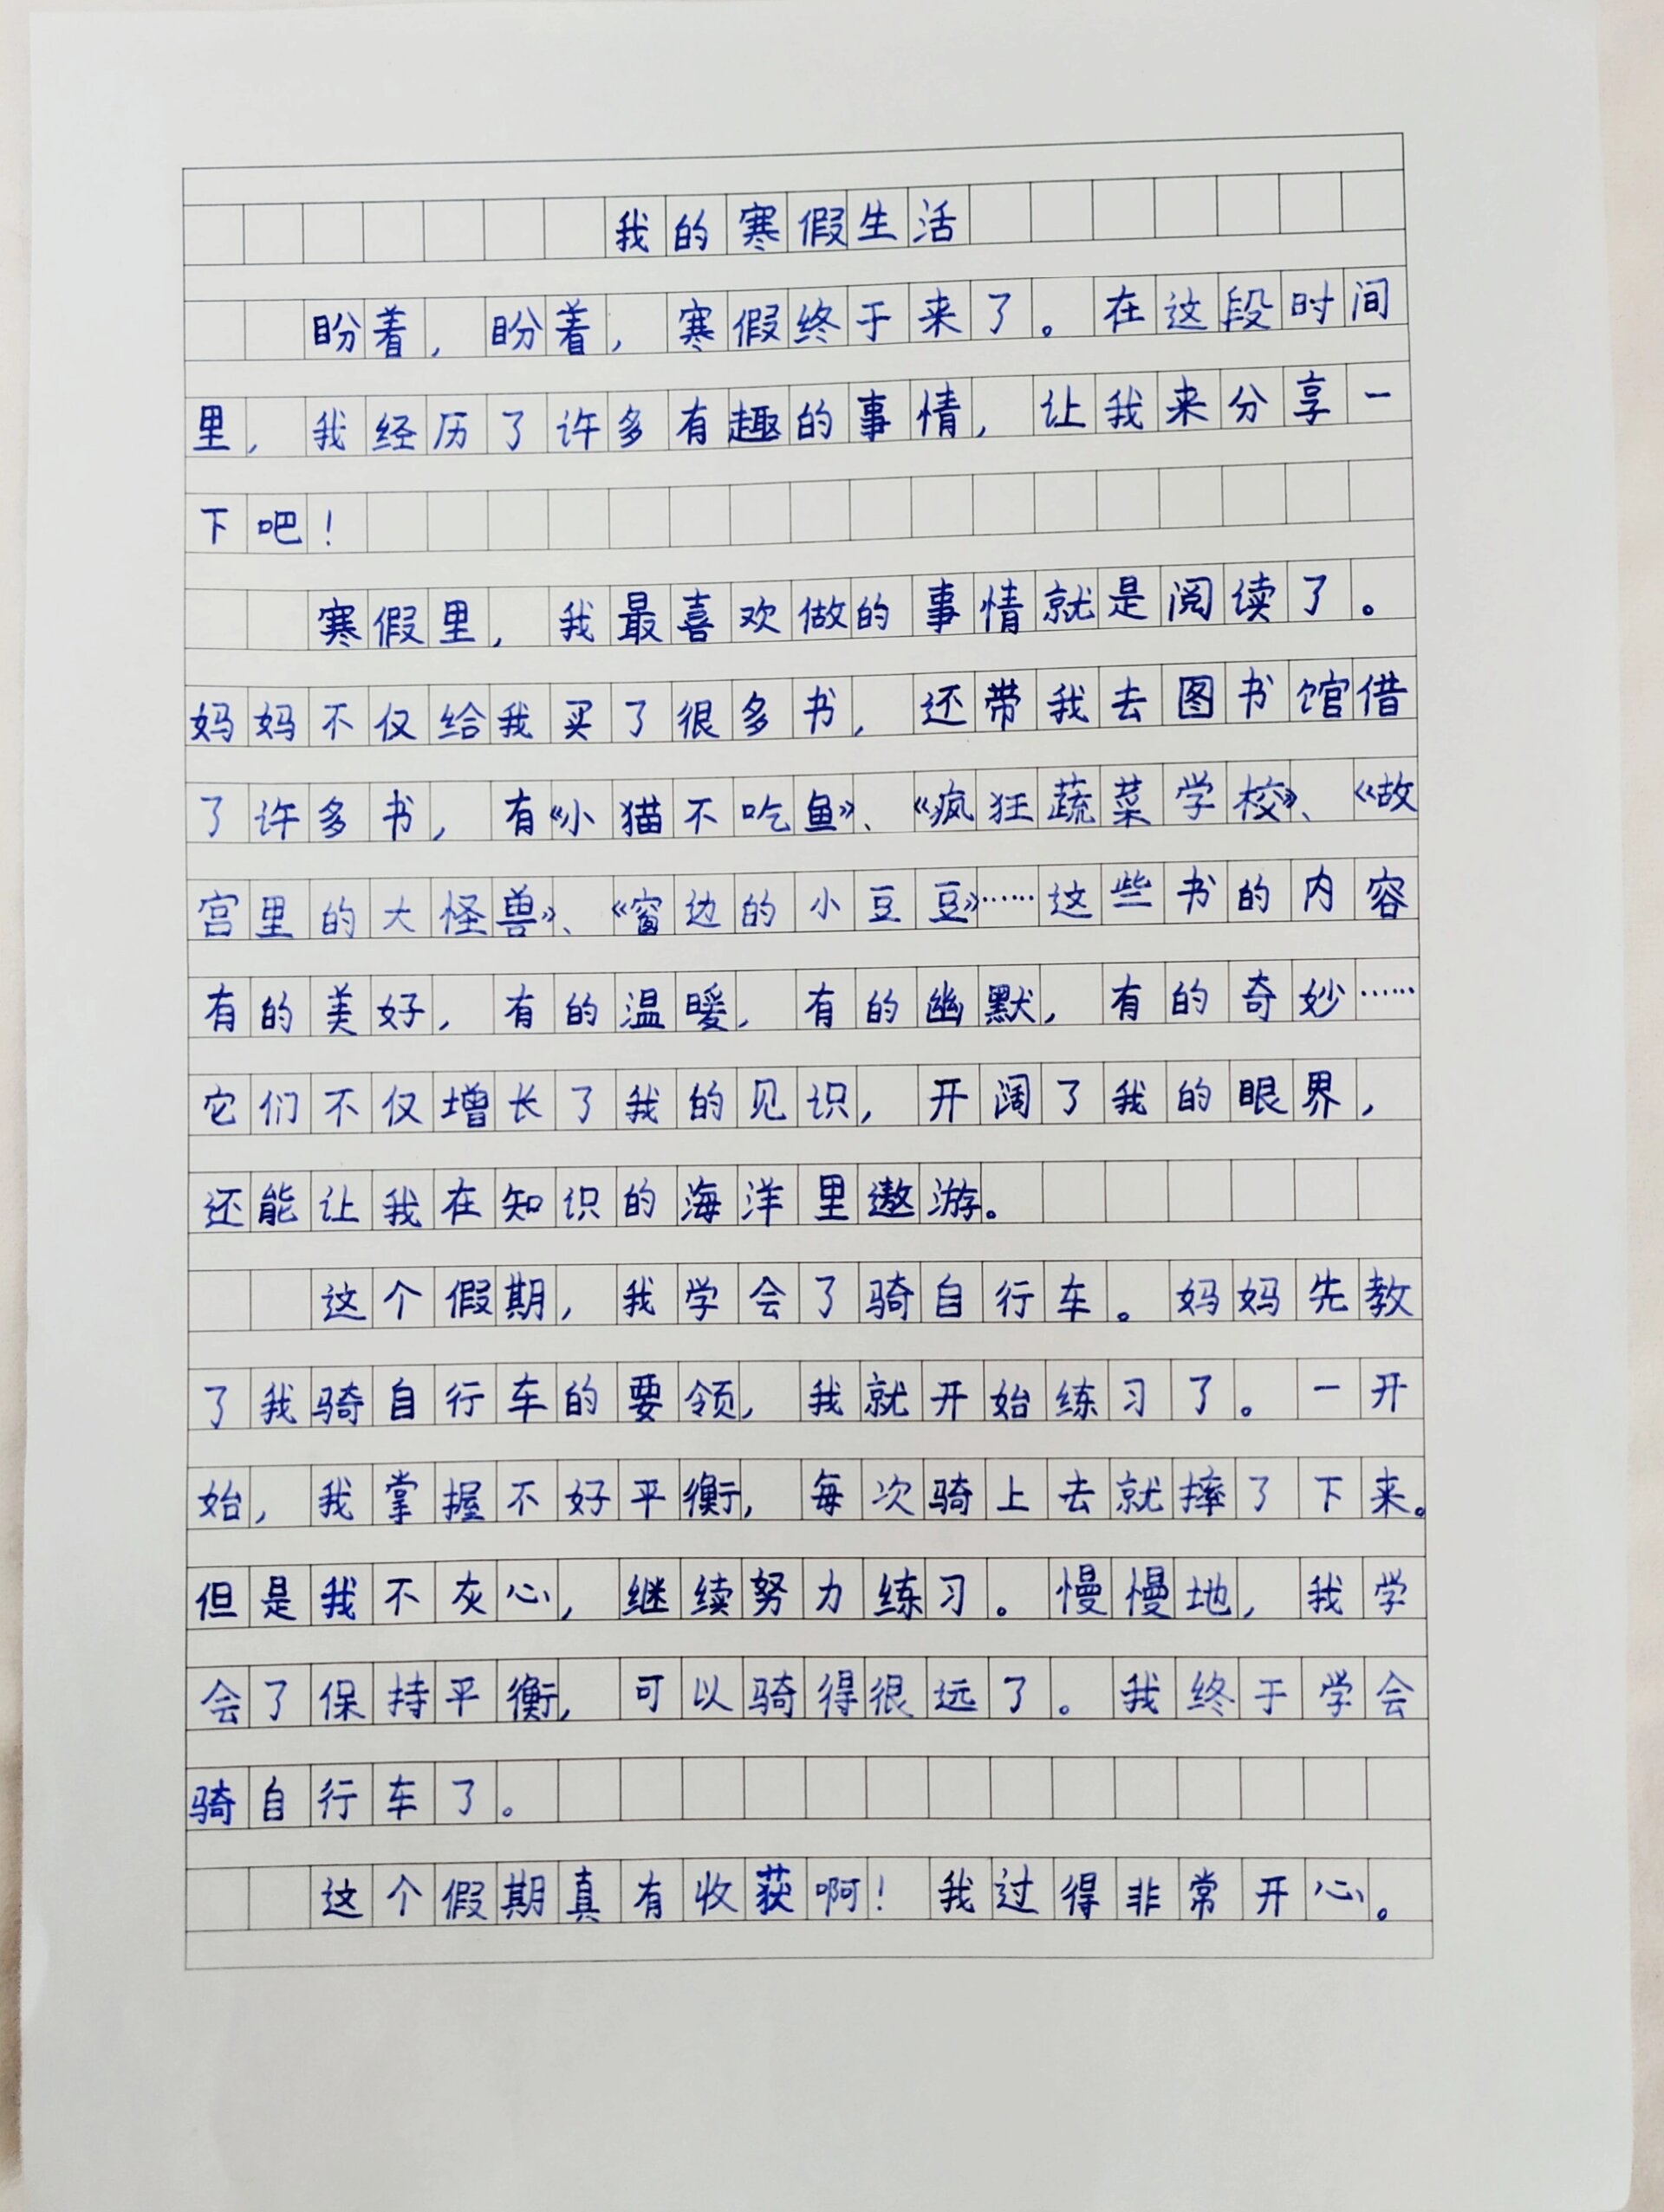 我的寒假生活
盼着，盼着，寒假终于来了。在这段时间
里，我经历了许多有趣的事情，让我来分享一
下吧！
寒假里，我最喜欢做的事情就是阅读了。
妈妈不仅给我买了很多书，还带我去图书馆借
了许多书，有《小猫不吃鱼》、《疯狂蔬菜学校》、《故
宫里的大怪兽》、《窗边的小豆豆》……这些书的内容
有的美好，有的温暖，有的幽默，有的奇妙……
它们不仅增长了我的见识，开阔了我的眼界，
还能让我在知识的海洋里遨游。
这个假期，我学会了骑自行车。妈妈先教
了我骑自行车的要领，我就开始练习了。一开
始，我掌握不好平衡，每次骑上去就摔了下来。
但是我不灰心，继续努力练习。慢慢地，我学
会了保持平衡，可以骑得很远了。我终于学会
骑自行车了。
这个假期真有收获啊！我过得非常开心。